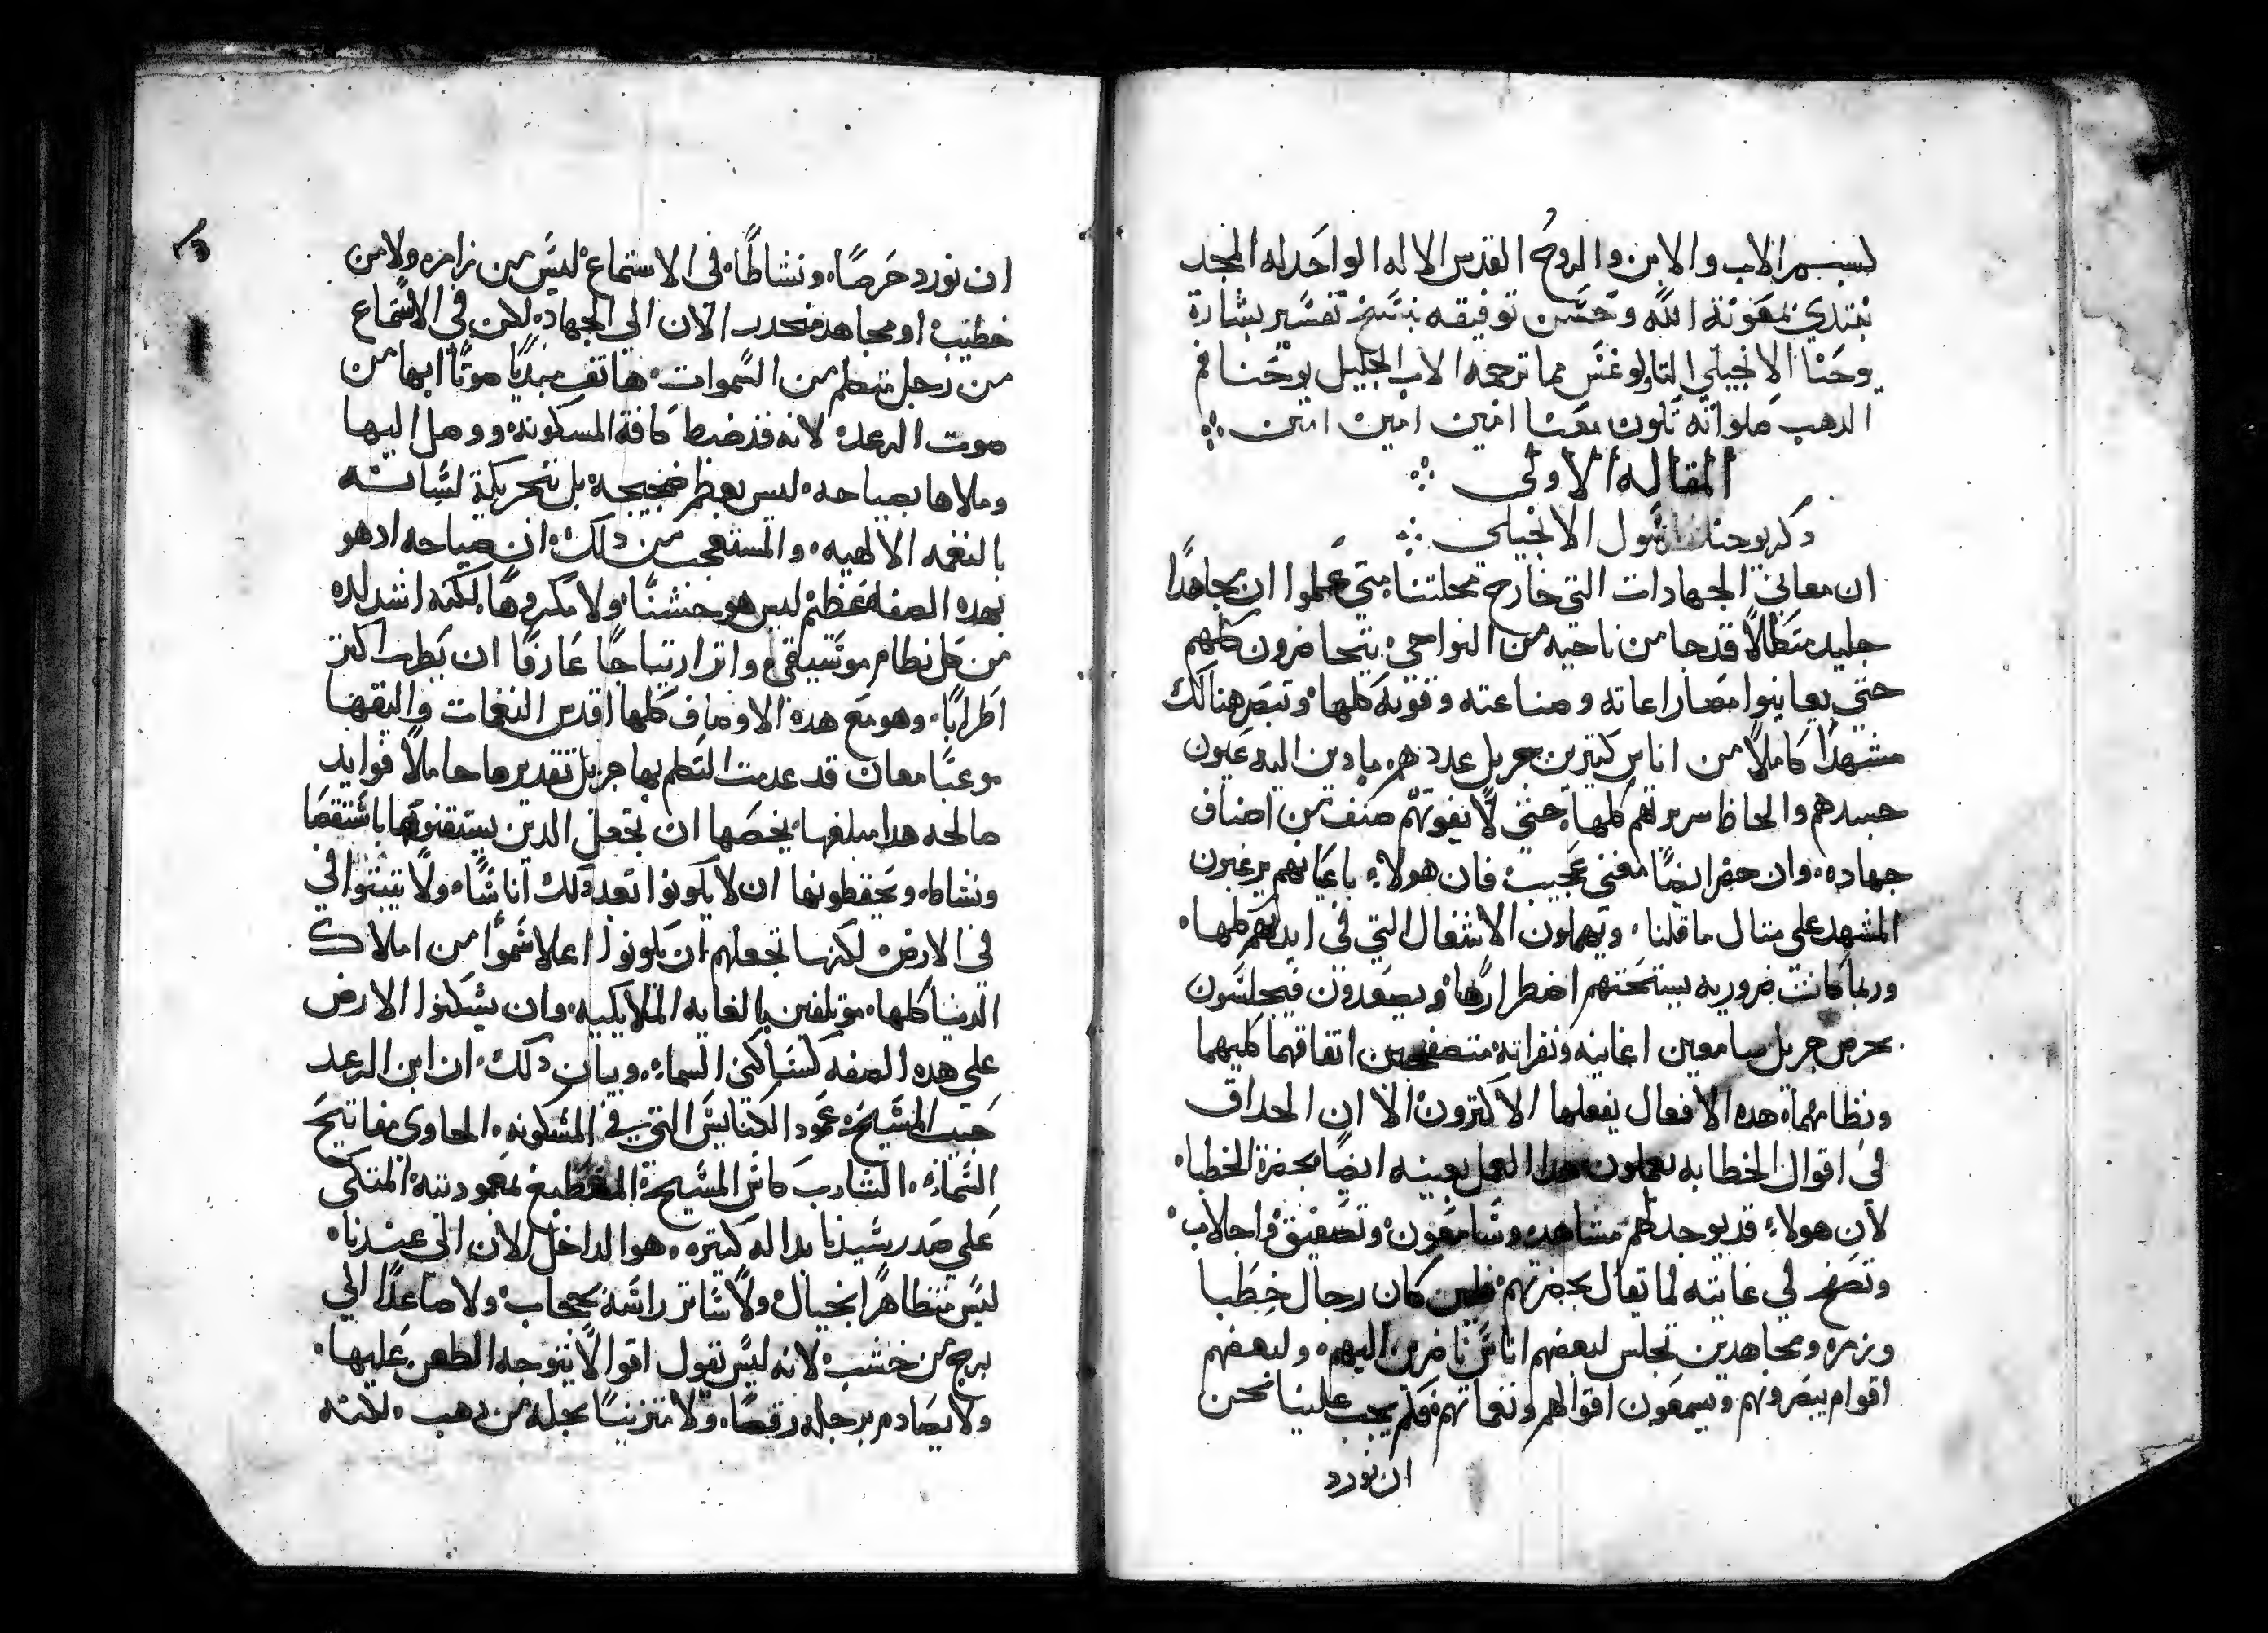 بسم الاب والابن والروح القدس الاله الواحد له المجد
نبتدي بمعونة الله وحسن توفيقه بنسخ تفسير بشارة
يوحنا الانجيلي التاولوغس مما ترجمه الاب الجليل يوحنا فم
الدهب صلواته تكون معنا امين امين امين
المقاله الاولي
دكر يوحنا الرسول الانجيلي
ان معاني الجهادات التي خارج محلتنا متي علموا ان مجاهدًا
جليد متكاملًا قد جا من ناحيه من النواحي يتحاضرون كلهم
حتي يعاينوا مصاراعاته وصناعته وقوته كلها وتبصر هنالك
مشهدًا كاملًا من اناس كتيرين جزيل عددهم مادين اليه عيون
جسدهم والحاظ سريرتهم كلها حتي لا يفوتهم صنف من اصناف
جهاده وان حضر ايضًا مغني عجيب فان هولاء باعيانهم يزغرون
المشهد علي متال ما قلنا ويهملون الاشغال التي في ايديهم كلها
وربما كانت ضروريه يستحتهم اضطرارها ويصعدون فيجلسون
بحرص جزيل سامعين اغانيه ونقراته متصفحين اتفاقهما كليهما
ونظامهما هده الافعال يفعلها الاكترون الا ان الحداق
في اقوال الخطابه يعملون هدا العمل بعينه ايضًا بحضرة الخطبا
لان هولاء قد يوجد لهم مشاهد وسامعون وتصفيق واجلاب
وتصفح في غايته لما تقال بحضرتهم فلين كان رجال خطبا
وزمره ومجاهدين تجلس لبعضهم اناس ناضرين اليهم ولبعضهم
اقوام يبصرونهم ويسمعون اقوالهم ونغماتهم فكم يجب علينا نحن
ان نورد
ان نورد حرصًا ونشاطًا في الاستماع ليس من زامره ولا من
خطيب او مجاهد منحدر الان الي الجهاد لكن في الاستماع
من رجل متكلم من السموات هاتف مبديًا صوتًا ابها من
صوت الرعده لانه قد ضبط كافة المسكونه ووصل اليها
وملاها بصياحه ليس بعظم ضجيجه بل بتحريكة لسانه
بالنغمه الالهيه والمستعجب من دلك ان صياحه اد هو
بهده الصفه عظيم ليس هو خشنًا ولا مكروهًا لكنه اشد لده
من كل نظام موسيقي واتر ارتياحًا عارفًا ان يطرب اكتر
اطرابًا وهو مع هده الاوصاف كلها اقدس النغمات واليقها
موعبًا معان قد عدمت التكلم بها جزيل تقديرها حاملًا فوايد
صالحه هدا مبلغها يخصها ان تجعل الدين يستقنونها باستقصا
ونشاط ويحفظونها ان لا يكونوا بعد دلك اناسًا ولا يتبتوا في
في الارض لكنها تجعلهم ان يكونوا اعلا سموًا من املاك
الدنيا كلها موتلفين بالغايه الملايكيه وان يسكنوا الارض
علي هده الصفه كساكني السماء وبيان دلك ان ابن الرعد
حبيب المسيح عمود الكنايس التي في المسكونه الحاوي مفاتيح
السماء الشارب كاس المسيح المصطبغ بمعموديته المتكي
علي صدر سيدنا بداله كتيره هو الداخل الان الي عندنا
ليس متظاهرًا بخيال ولا ساتر راسه بحجاب ولا صاعدًا الي
برج من خشب لانه ليس يقول اقوالًا يتوجه الطعن عليها
ولا يصادم برجله رقصًا ولا متزينًا بحله من دهب لكنه